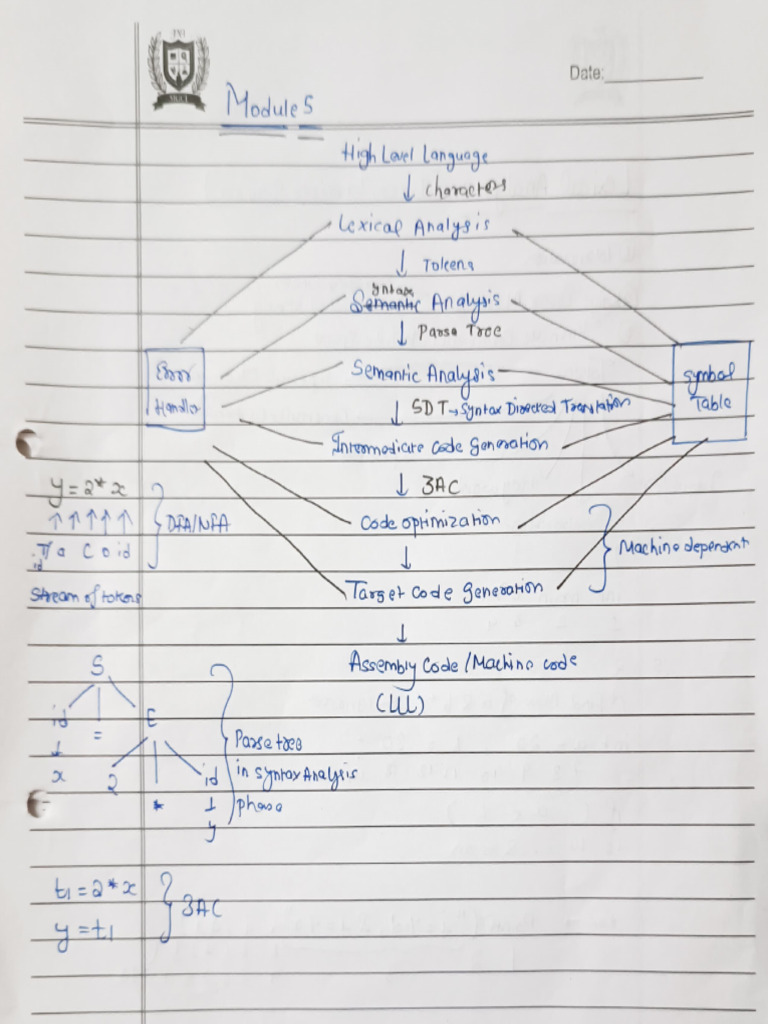 Date:
Module 5
High Level Language
↓ characters
Lexical Analysis
↓ Tokens
Syntax
Semantic Analysis
↓ Parse Tree
Error
Handler
Semantic Analysis
Symbol
Table
↓ SDT → Syntax Directed Translation
Intermediate Code Generation
↓ 3AC
y = 2 * x
↑ ↑ ↑ ↑ ↑
DFA/NFA
Code optimization
↓
Machine dependent
id a C o id
Stream of tokens
Target Code Generation
↓
Assembly Code / Machine code
(LLL)
S
id = E
↓
x 2 * id
↓
y
Parse tree
in Syntax Analysis
phase
t1 = 2 * x
y = t1
3AC